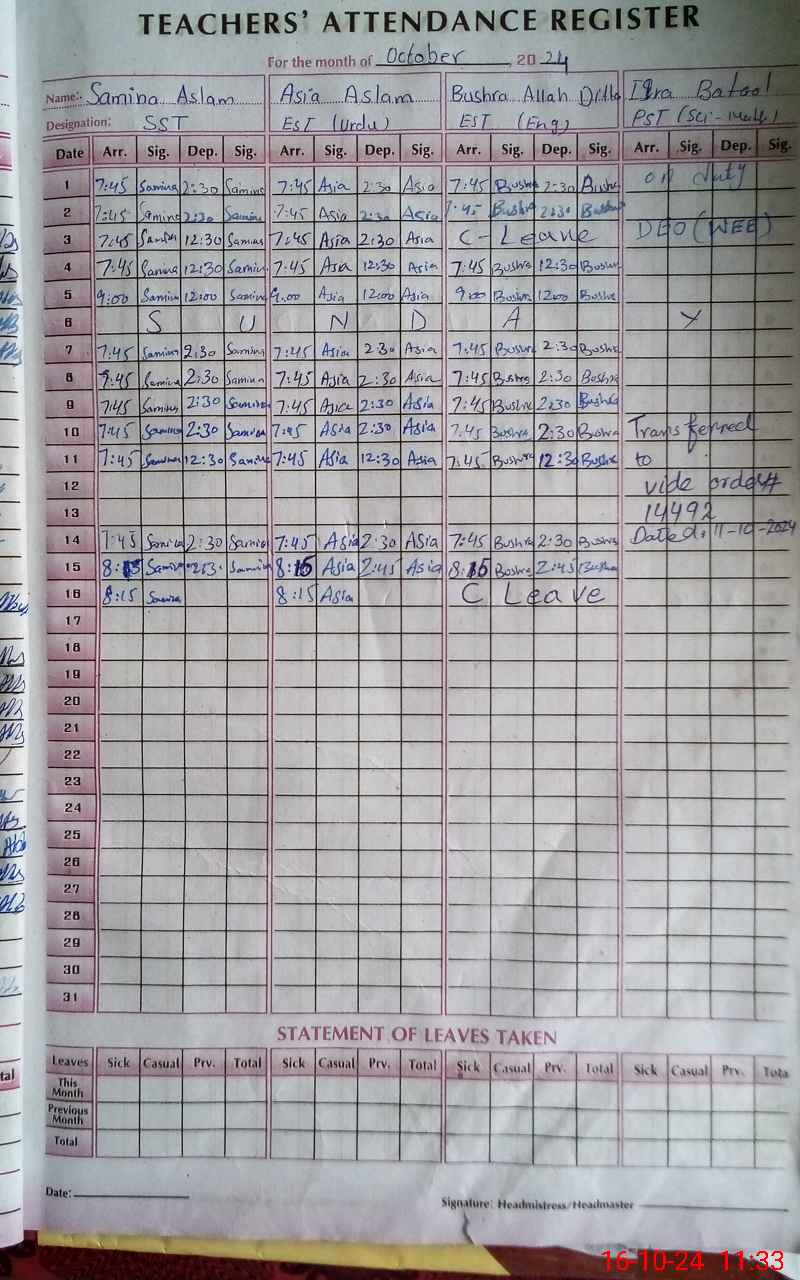 TEACHERS' ATTENDANCE REGISTER
For the month of October, 2024
Name: Samina Aslam Asia Aslam Bushra Allah Ditta Iqra Batool
Designation: SST EST (Urdu) EST (Eng) PST (Sci-Math)
Date Arr. Sig. Dep. Sig. Arr. Sig. Dep. Sig. Arr. Sig. Dep. Sig. Arr. Sig. Dep. Sig.
1 7:45 Samina 2:30 Samina 7:45 Asia 2:30 Asia 7:45 Bushra 2:30 Bushra on duty
2 7:45 Samina 2:30 Samina 7:45 Asia 2:30 Asia 7:45 Bushra 2:30 Bushra
3 7:45 Samina 12:30 Samina 7:45 Asia 2:30 Asia C-Leave DEO (WEE)
4 7:45 Samina 12:30 Samina 7:45 Asia 12:30 Asia 7:45 Bushra 12:30 Bushra
5 9:00 Samina 12:00 Samina 9:00 Asia 12:00 Asia 9:00 Bushra 12:00 Bushra
6 S U N D A Y
7 7:45 Samina 2:30 Samina 7:45 Asia 2:30 Asia 7:45 Bushra 2:30 Bushra
8 7:45 Samina 2:30 Samina 7:45 Asia 2:30 Asia 7:45 Bushra 2:30 Bushra
9 7:45 Samina 2:30 Samina 7:45 Asia 2:30 Asia 7:45 Bushra 2:30 Bushra
10 7:45 Samina 2:30 Samina 7:45 Asia 2:30 Asia 7:45 Bushra 2:30 Bushra Transferred
11 7:45 Samina 12:30 Samina 7:45 Asia 12:30 Asia 7:45 Bushra 12:30 Bushra to
12 vide order#
13 14492
14 7:45 Samina 2:30 Samina 7:45 Asia 2:30 Asia 7:45 Bushra 2:30 Bushra Dated: 11-10-2024
15 8:15 Samina Samina 8:15 Asia 2:45 Asia 8:15 Bushra 2:45 Bushra
16 8:15 Samina 8:15 Asia C Leave
17
18
19
20
21
22
23
24
25
26
27
28
29
30
31
STATEMENT OF LEAVES TAKEN
Leaves Sick Casual Prv. Total Sick Casual Prv. Total Sick Casual Prv. Total Sick Casual Prv. Tota
This Month
Previous Month
Total
Date:
Signature: Headmistress/Headmaster
16-10-24 11:33